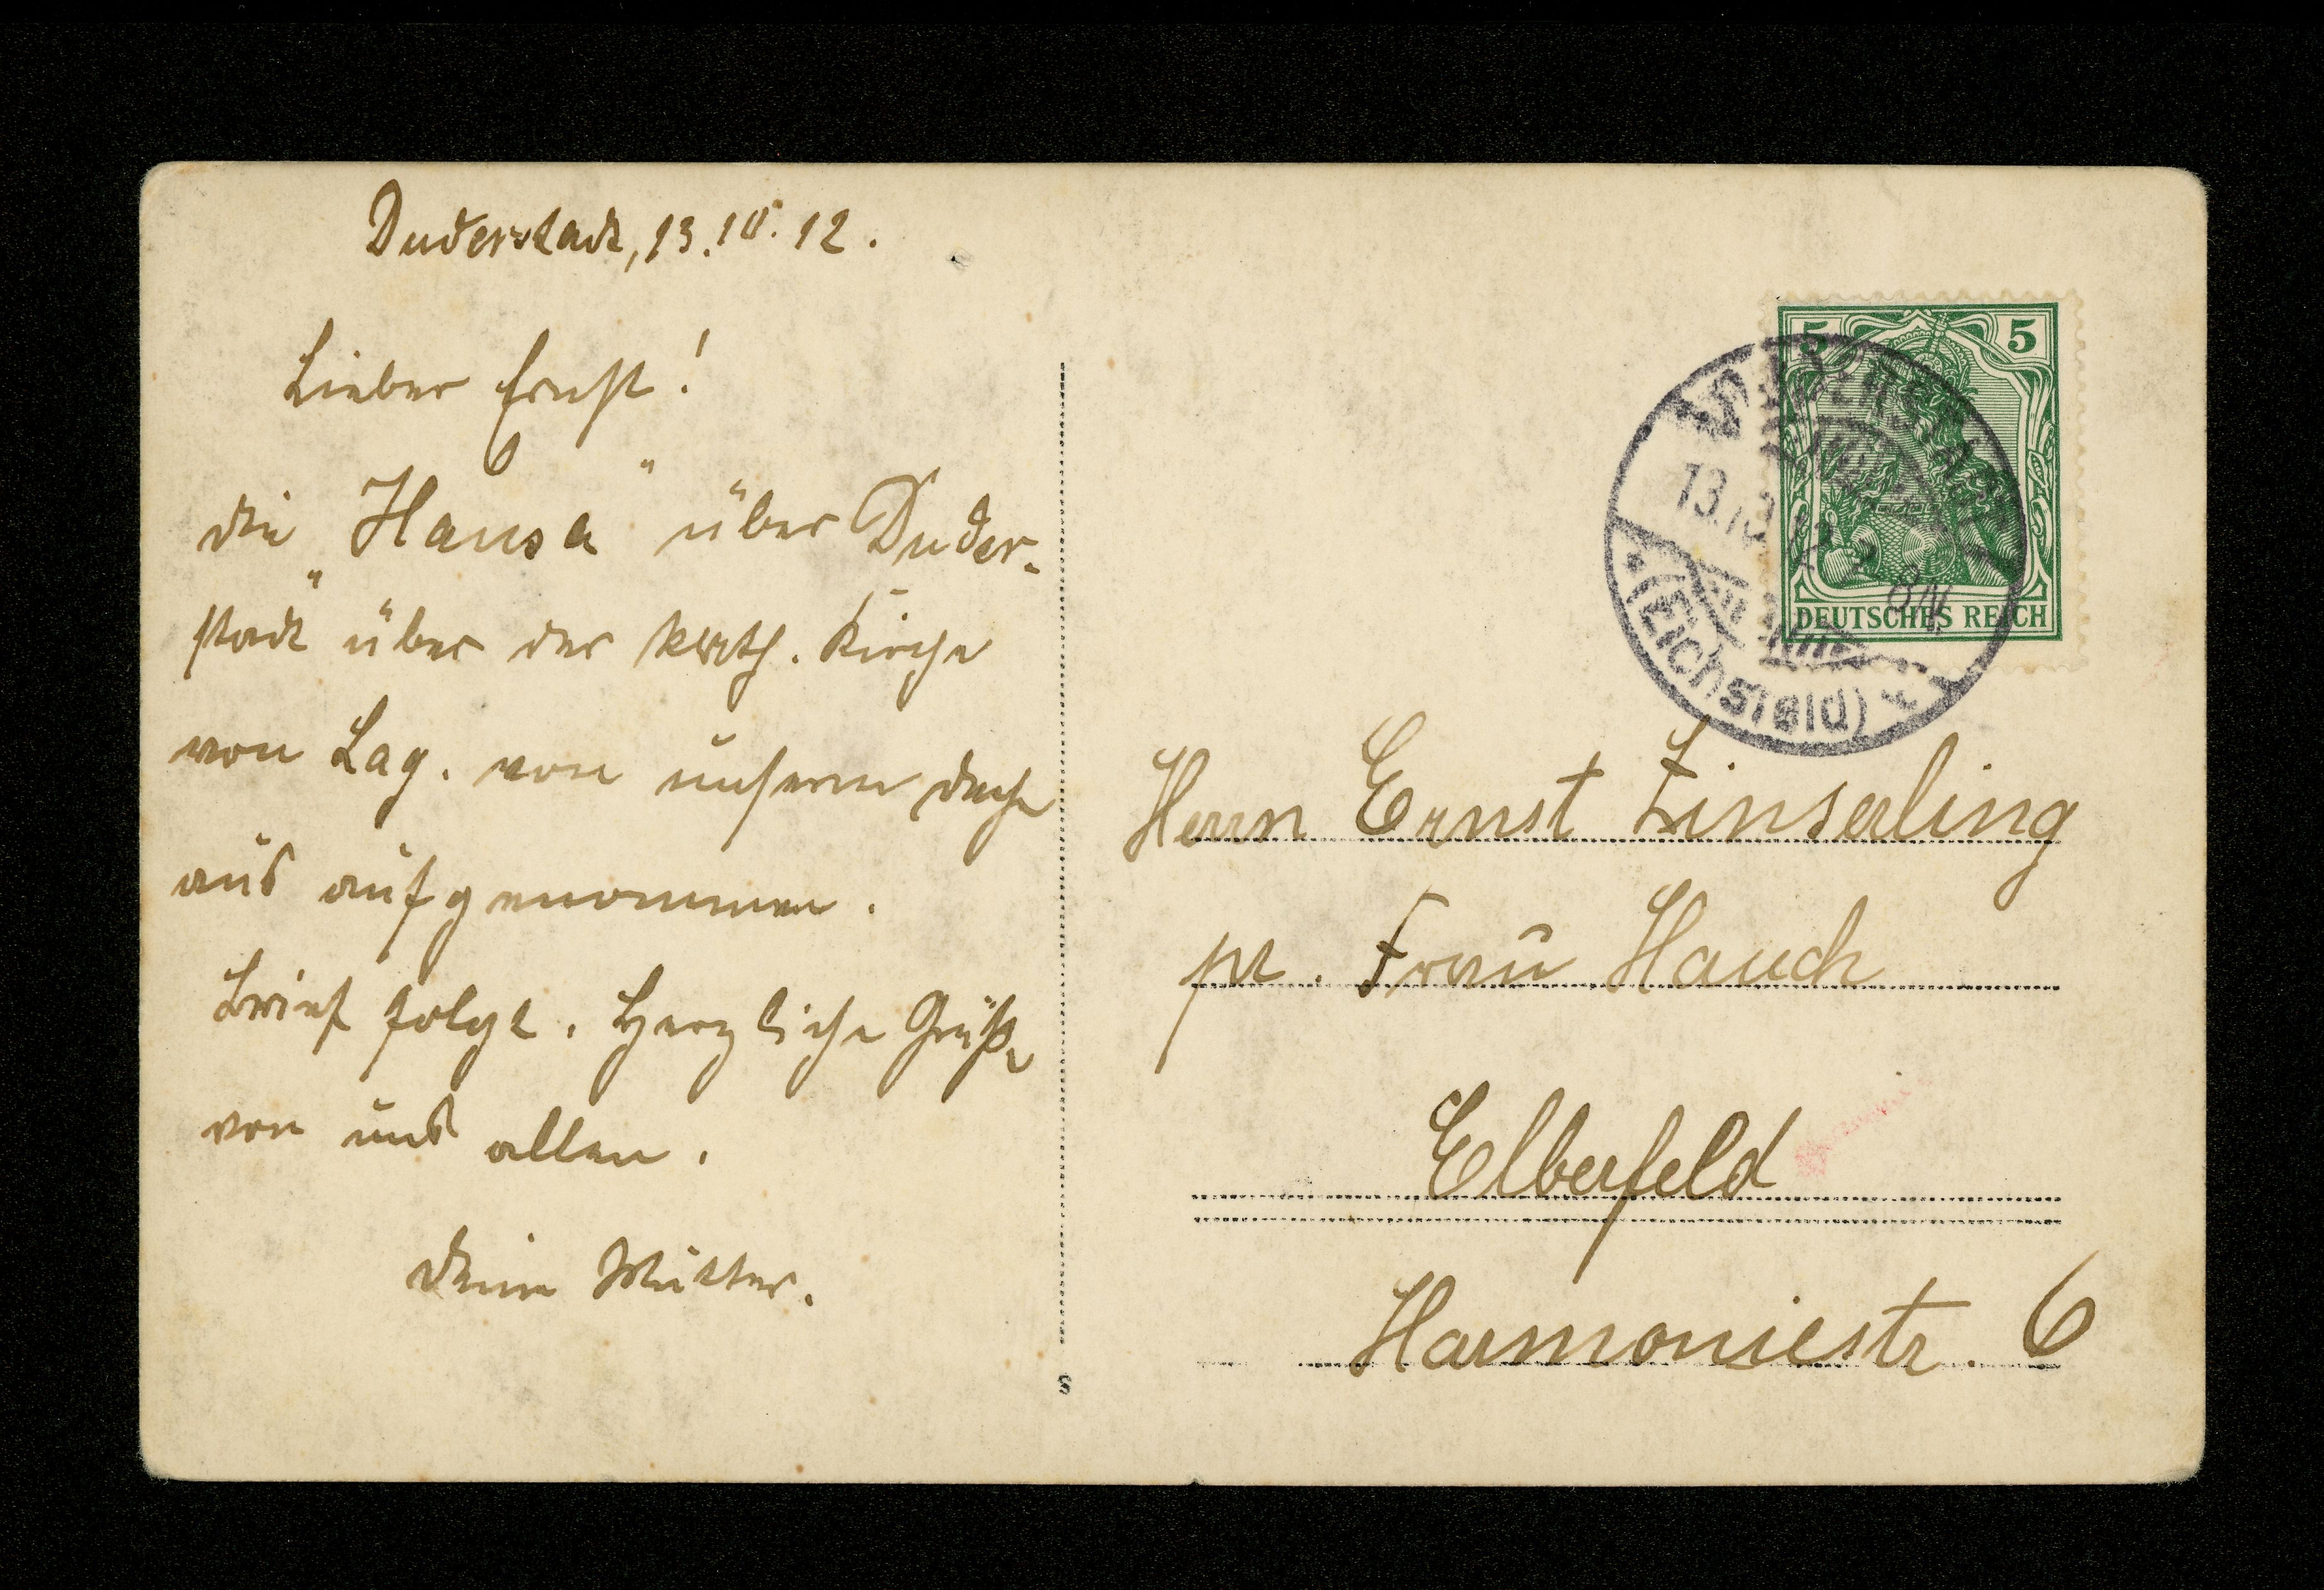 Duderstadt, 13.10.12.
Lieber Ernst!
die „Hansa" über Duder-
stadt über der kath. Kirche
von Lag. von unserm Dache
aus aufgenommen.
Brief folgt. Herzliche Grüße
von uns allen.
Deine Mutter.
S
5 5
DEUTSCHES REICH
DUDERSTADT
13.10.12. 8N.
* (Eichsfeld) *
Herrn Ernst Zinserling
pr. Frau Hauch
Elberfeld
Harmoniestr. 6